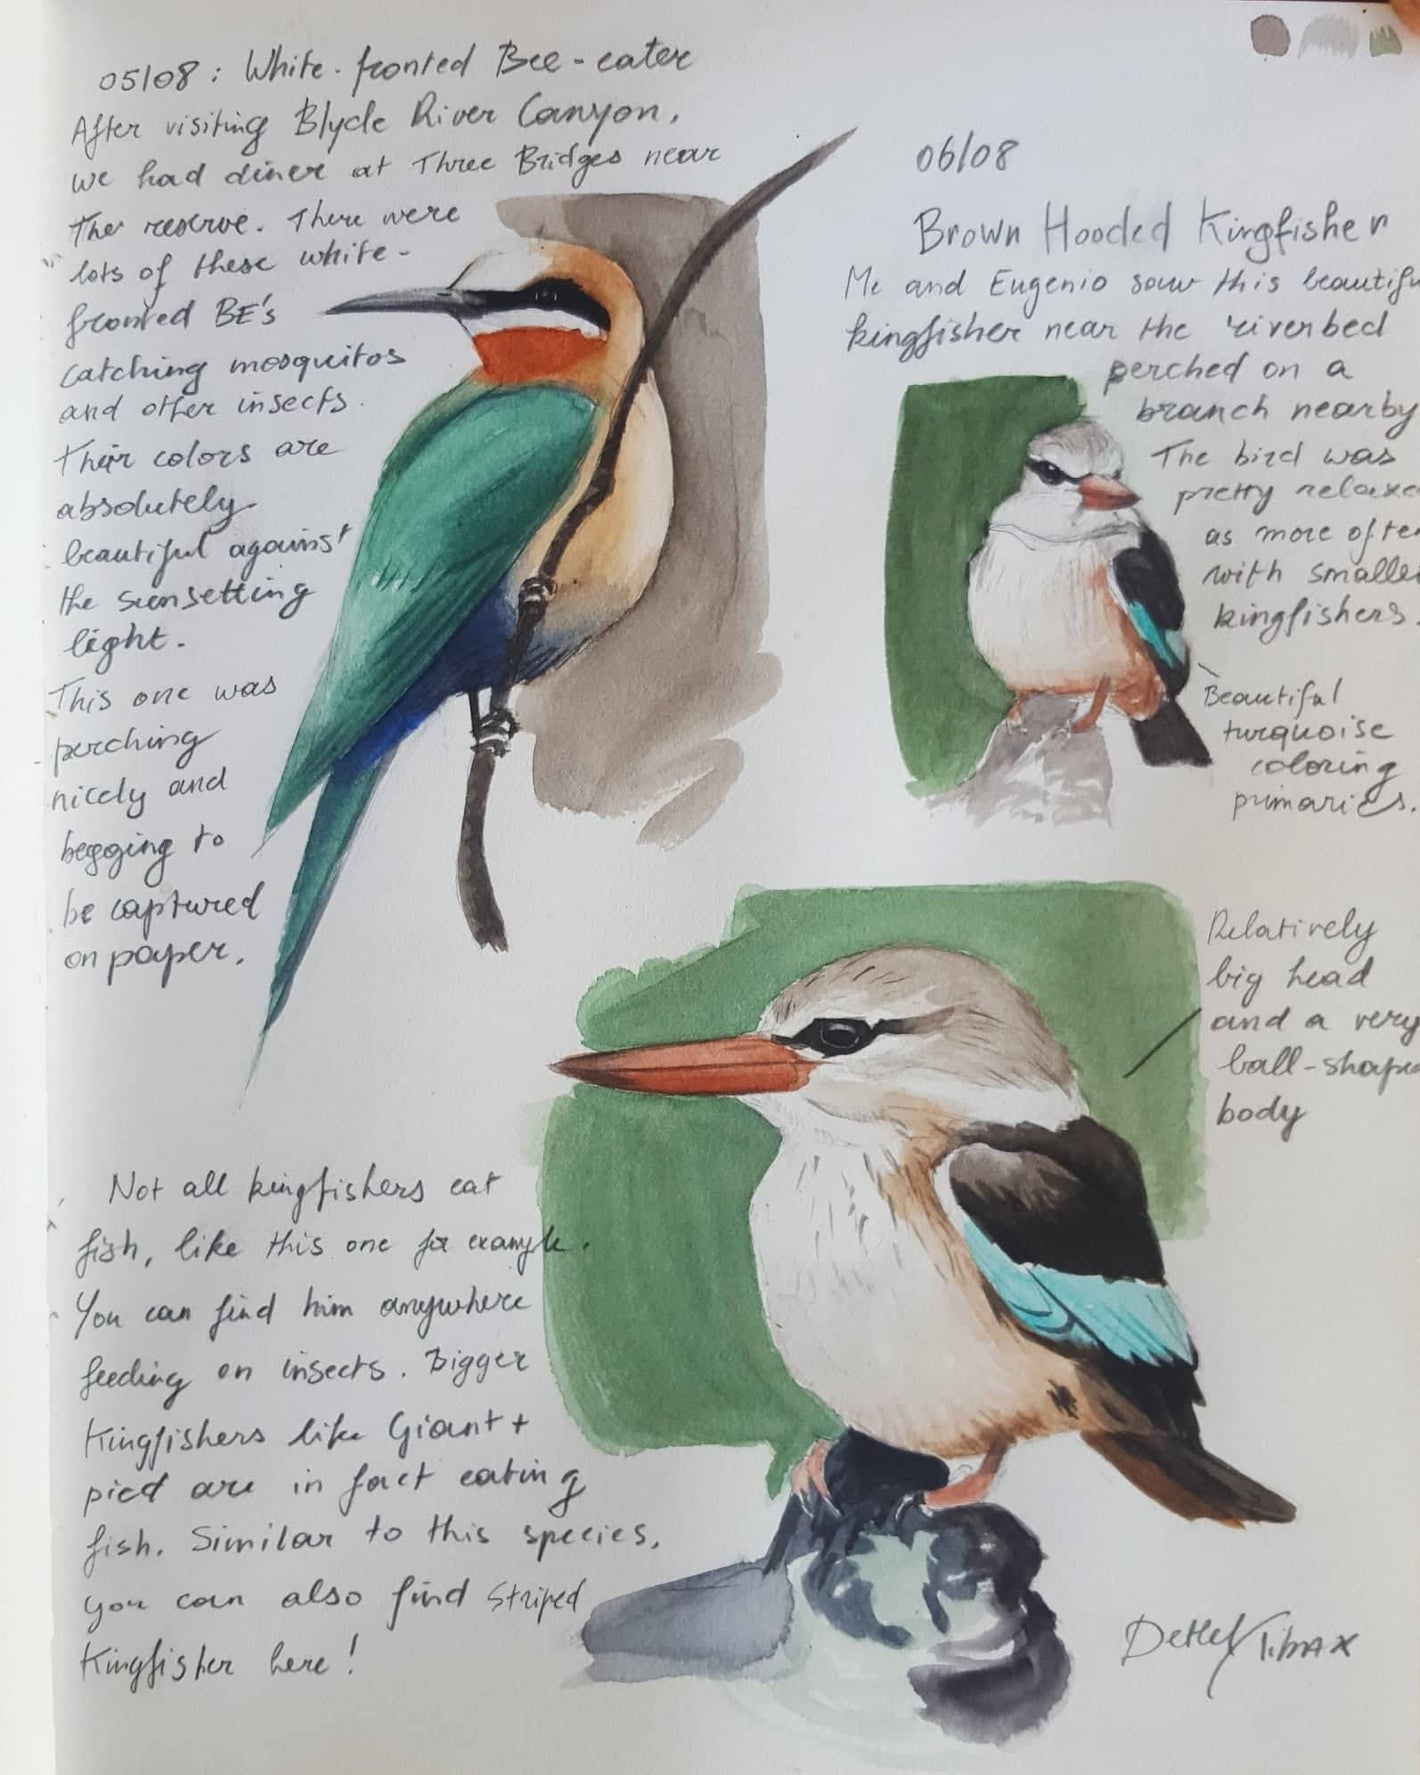 05/08: White-fronted Bee-eater
After visiting Blyde River Canyon,
we had diner at Three Bridges near
the reserve. There were
lots of these white-
fronted BE's
catching mosquitos
and other insects.
Their colors are
absolutely
beautiful against
the sunsetting
light.
This one was
perching
nicely and
begging to
be captured
on paper.
06/08
Brown Hooded Kingfisher
Me and Eugenio saw this beautifu
kingfisher near the riverbed
perched on a
branch nearby
The bird was
pretty relaxe
as more ofte
with smaller
kingfishers.
Beautiful
turquoise
coloring
primaries.
Relatively
big head
and a very
ball-shape
body
Not all kingfishers eat
fish, like this one for example.
You can find him anywhere
feeding on insects. Bigger
Kingfishers like Giant +
pied are in fact eating
fish. Similar to this species,
you can also find Striped
Kingfisher here!
Detlef